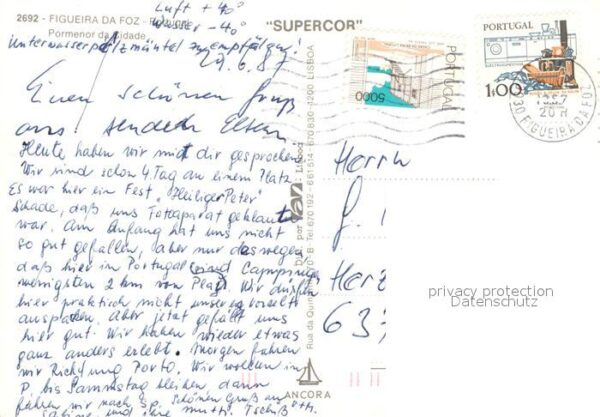 2692 - FIGUEIRA DA FOZ -
Pormenor da Cidade
"SUPERCOR"
Luft + 40°
Wasser - 40°
zu empfehlen!
29.6.87
Einen schönen Gruß
aus! senden Eltern
Heute haben wir mit dir gesprochen
Wir sind schon 4 Tag an einem Platz
Es war hier ein Fest "Heiliger Peter"
Schade, daß uns Fotoaparat geklaut
war. Am Anfang hat uns nicht
so gut gefallen, aber nur deswegen
daß hier in Portugal sind Camping
wenigsten 2 km von Wir dürfen
hier praktisch nicht unser
auspacken. Aber jetzt gefällt uns
hier gut. Wir haben wieder etwas
ganz anders erlebt. Morgen fahren
wir Richtung Porto. Wir wollen in
P. bis Samstag bleiben dann
fahren wir nach Sp. schönen Gruß an
Sabine und ihre Mutti. Tschüß
PORTUGAL
5000
PORTUGAL
1$00
1987
20 H
FIGUEIRA DA FOZ
Herrn
Herz
633
Rua da Quin
Tel 670192 - 661514 - 670830 - 1200 LISBOA
ANCORA
privacy protection
Datenschutz